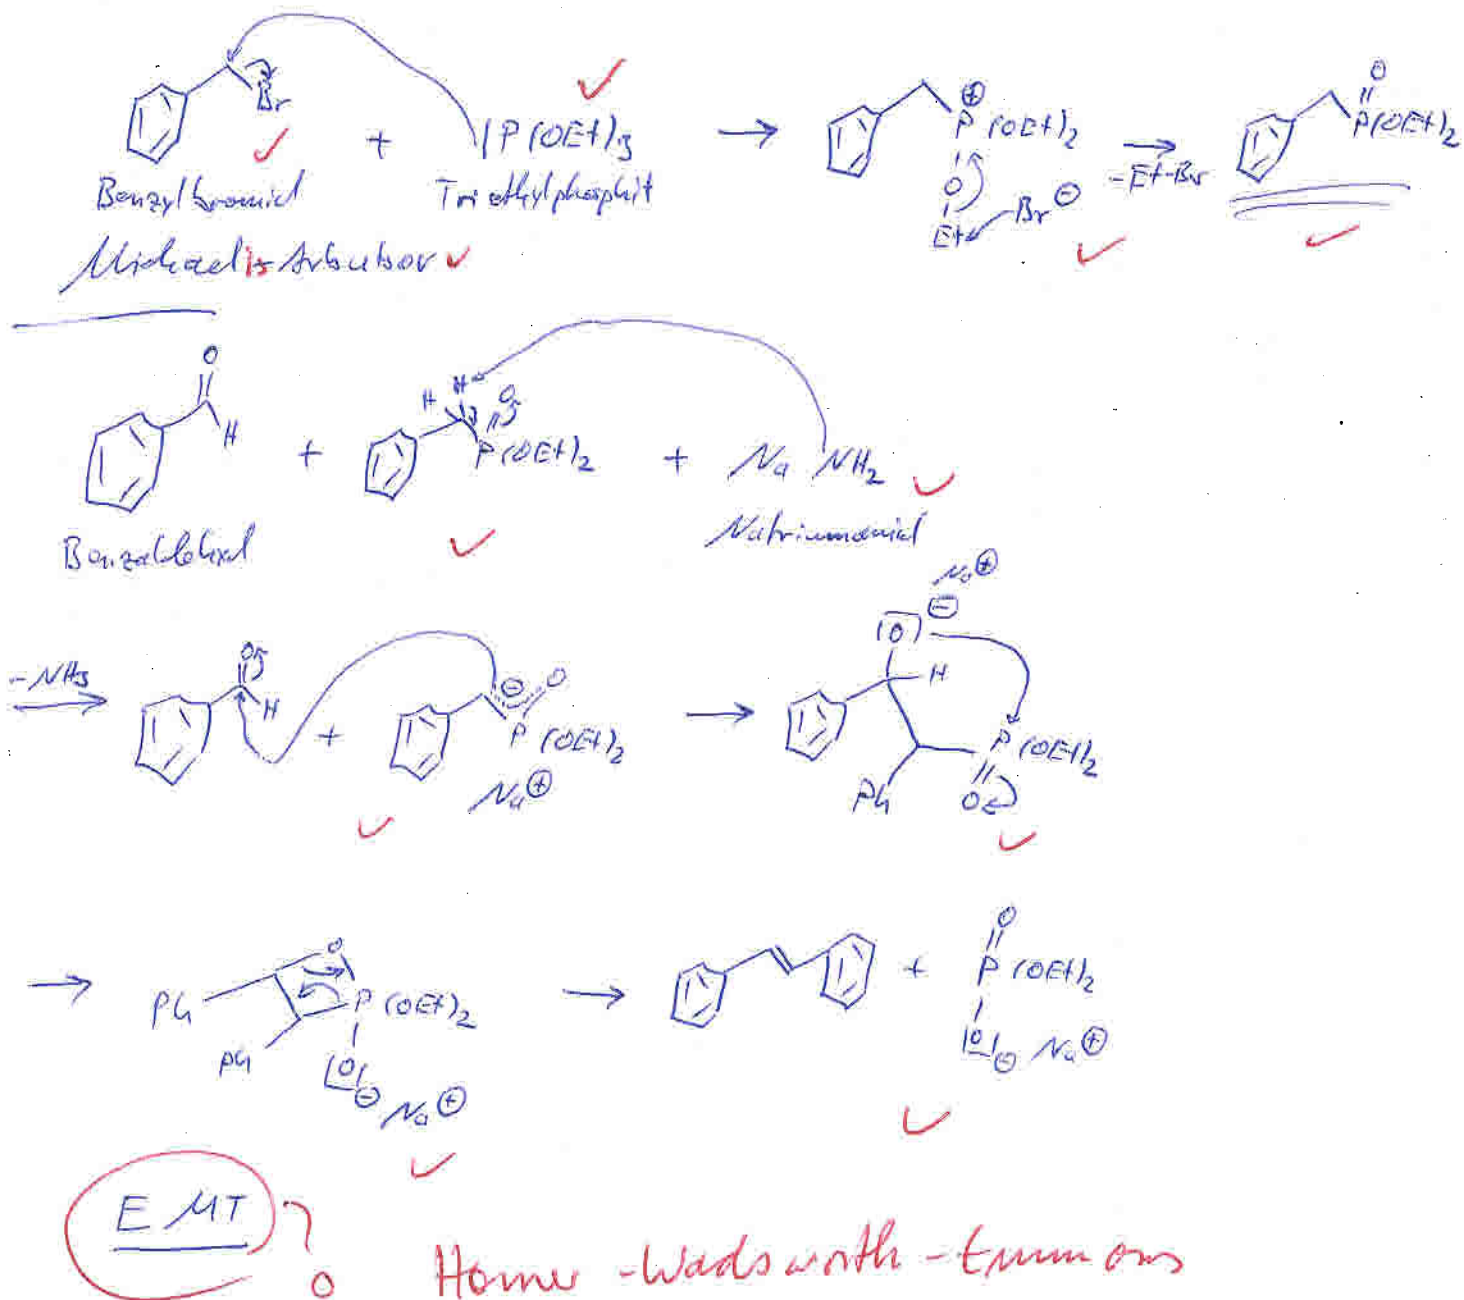 Br
+ |P(OEt)3 → ⊕ P(OEt)2 → O P(OEt)2
Benzylbromid Triethylphosphit O Et Br ⊖ -Et-Br
Michaelis-Arbusov
O H + H H O P(OEt)2 + Na NH2
Benzaldehyd Natriumamid
-NH3 → O H + ⊖ O P(OEt)2 Na⊕ → |O| ⊖ Na⊕ H Ph P(OEt)2 O
→ Ph Ph O P(OEt)2 |O| ⊖ Na⊕ → + O P(OEt)2 |O| ⊖ Na⊕
EMT ?
Horner-Wadsworth-Emmons